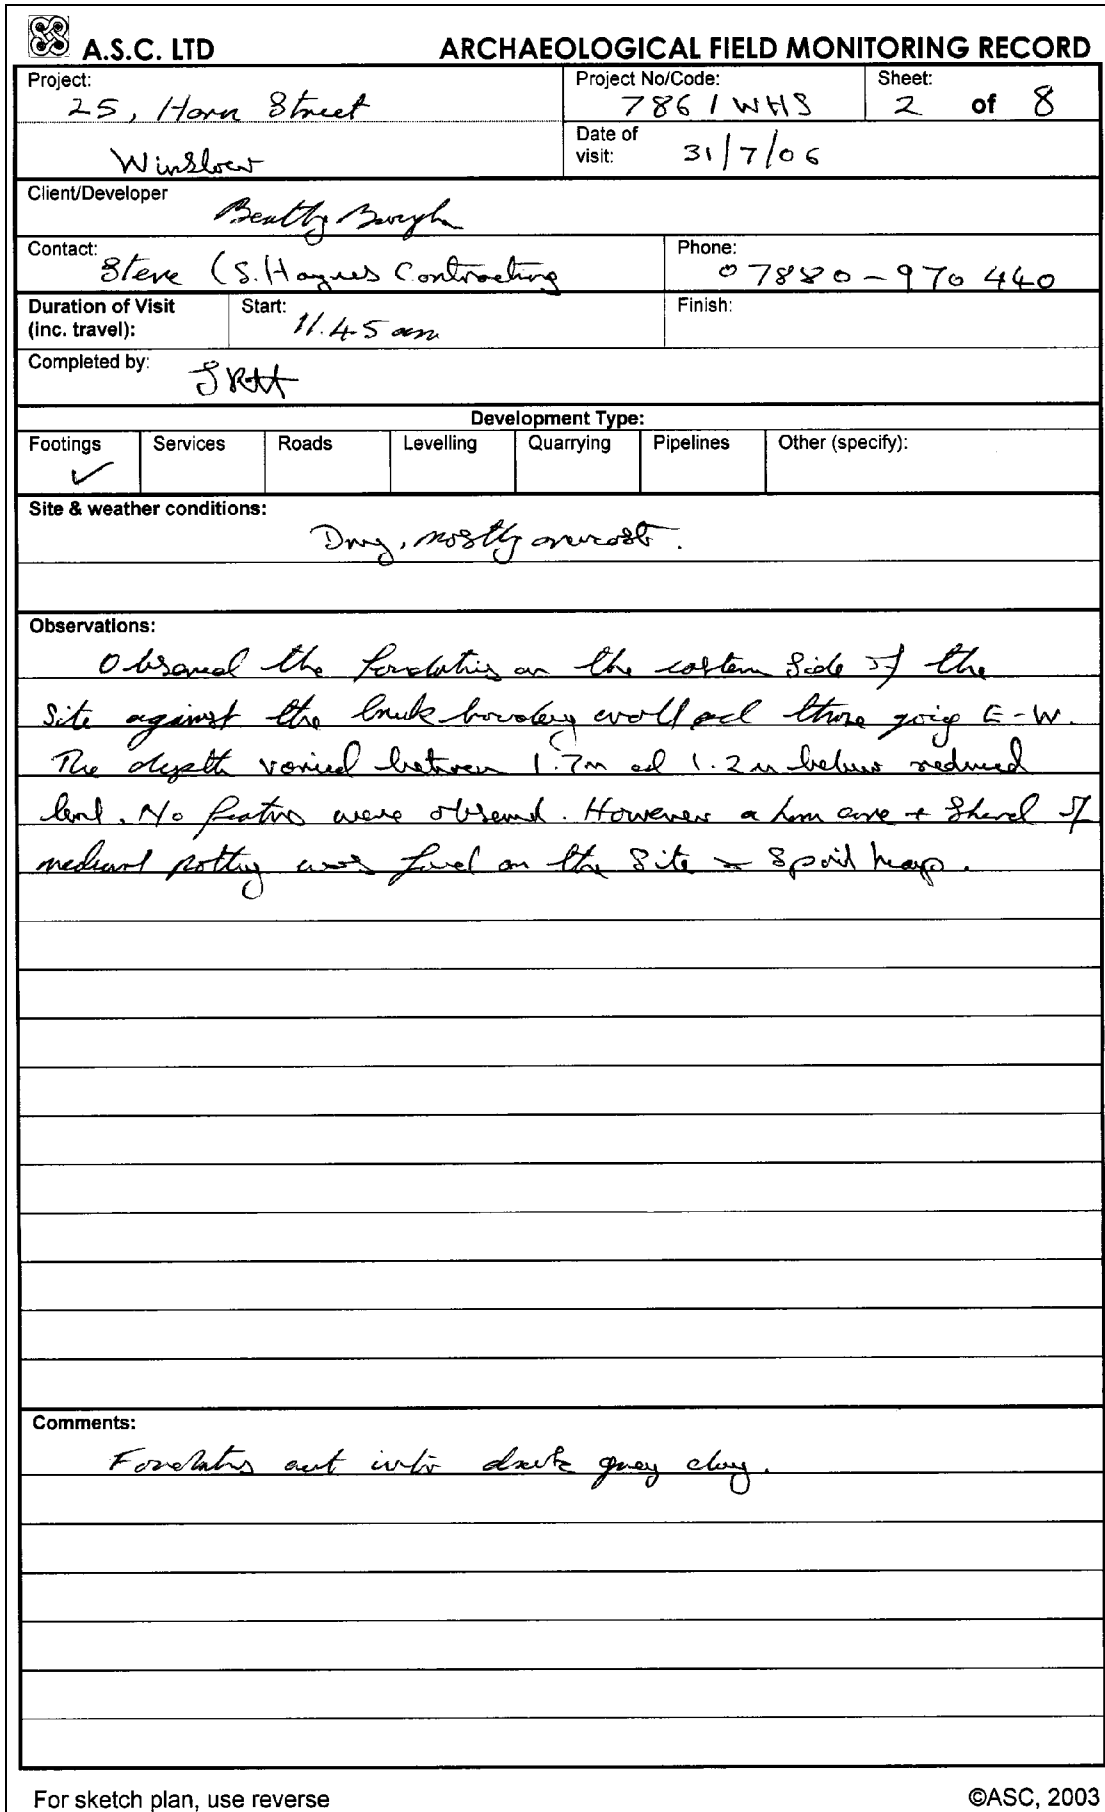 A.S.C. LTD ARCHAEOLOGICAL FIELD MONITORING RECORD
Project: 25, Horn Street
Winslow
Project No/Code: 786/WHS
Sheet: 2 of 8
Date of visit: 31/7/06
Client/Developer
Contact: Steve (S. Haynes Contracting
Phone: 07880-970 440
Duration of Visit (inc. travel):
Start: 11.45 am
Finish:
Completed by:
Development Type:
Footings ✓ Services Roads Levelling Quarrying Pipelines Other (specify):
Site & weather conditions:
Dry, mostly overcast.
Observations:
Observed the foundations on the eastern side of the
site against the brick boundary wall and those going E-W.
The depth varied between 1.7m and 1.2m below reduced
level. No features were observed. However a horn core + sherd of
medieval pottery was found on the site spoil heap.
Comments:
Foundations cut into dark grey clay.
For sketch plan, use reverse
©ASC, 2003